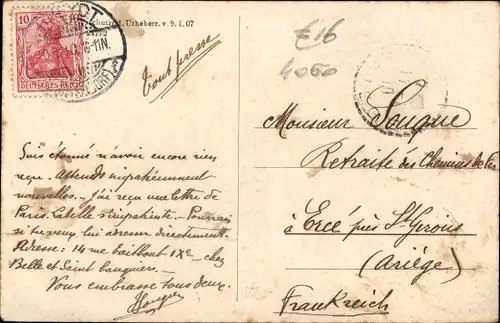 Schutz d. Urheberr. v. 9.1.07
10
DEUTSCHES REICH
E16
4050
Tout presse
Suis étonné n'avoir encore rien
reçu. Attends impatiemment
nouvelles. – J'ai reçu une lettre de
Paris. Labelle s'impatiente. – Pourrais
si tu veux lui adresser directement.
Adresse: 14 rue Taitbout IXe – chez
Belle et Saint banquiers.
Vous embrasse tous deux.
Monsieur Souque
Retraité des Chemins de Fer
à Ercé près St Girons
(Ariège)
Frankreich